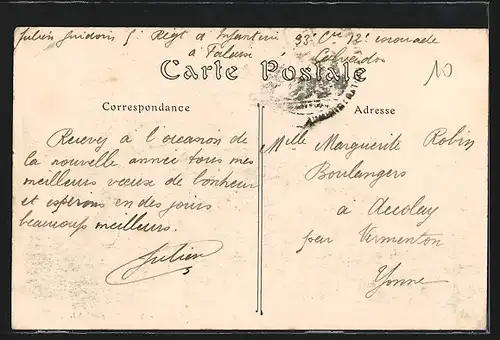 Julien 5e Régt d'Infanterie 33e Cie 12e escouade
à Falaise Calvados
Carte Postale
10
Correspondance
Adresse
Recevez à l'occasion de
la nouvelle année tous mes
meilleurs vœux de bonheur
et espérons en des jours
beaucoup meilleurs.
Julien
Melle Marguerite Robin
Boulangers
à Accolay
par Vermenton
Yonne